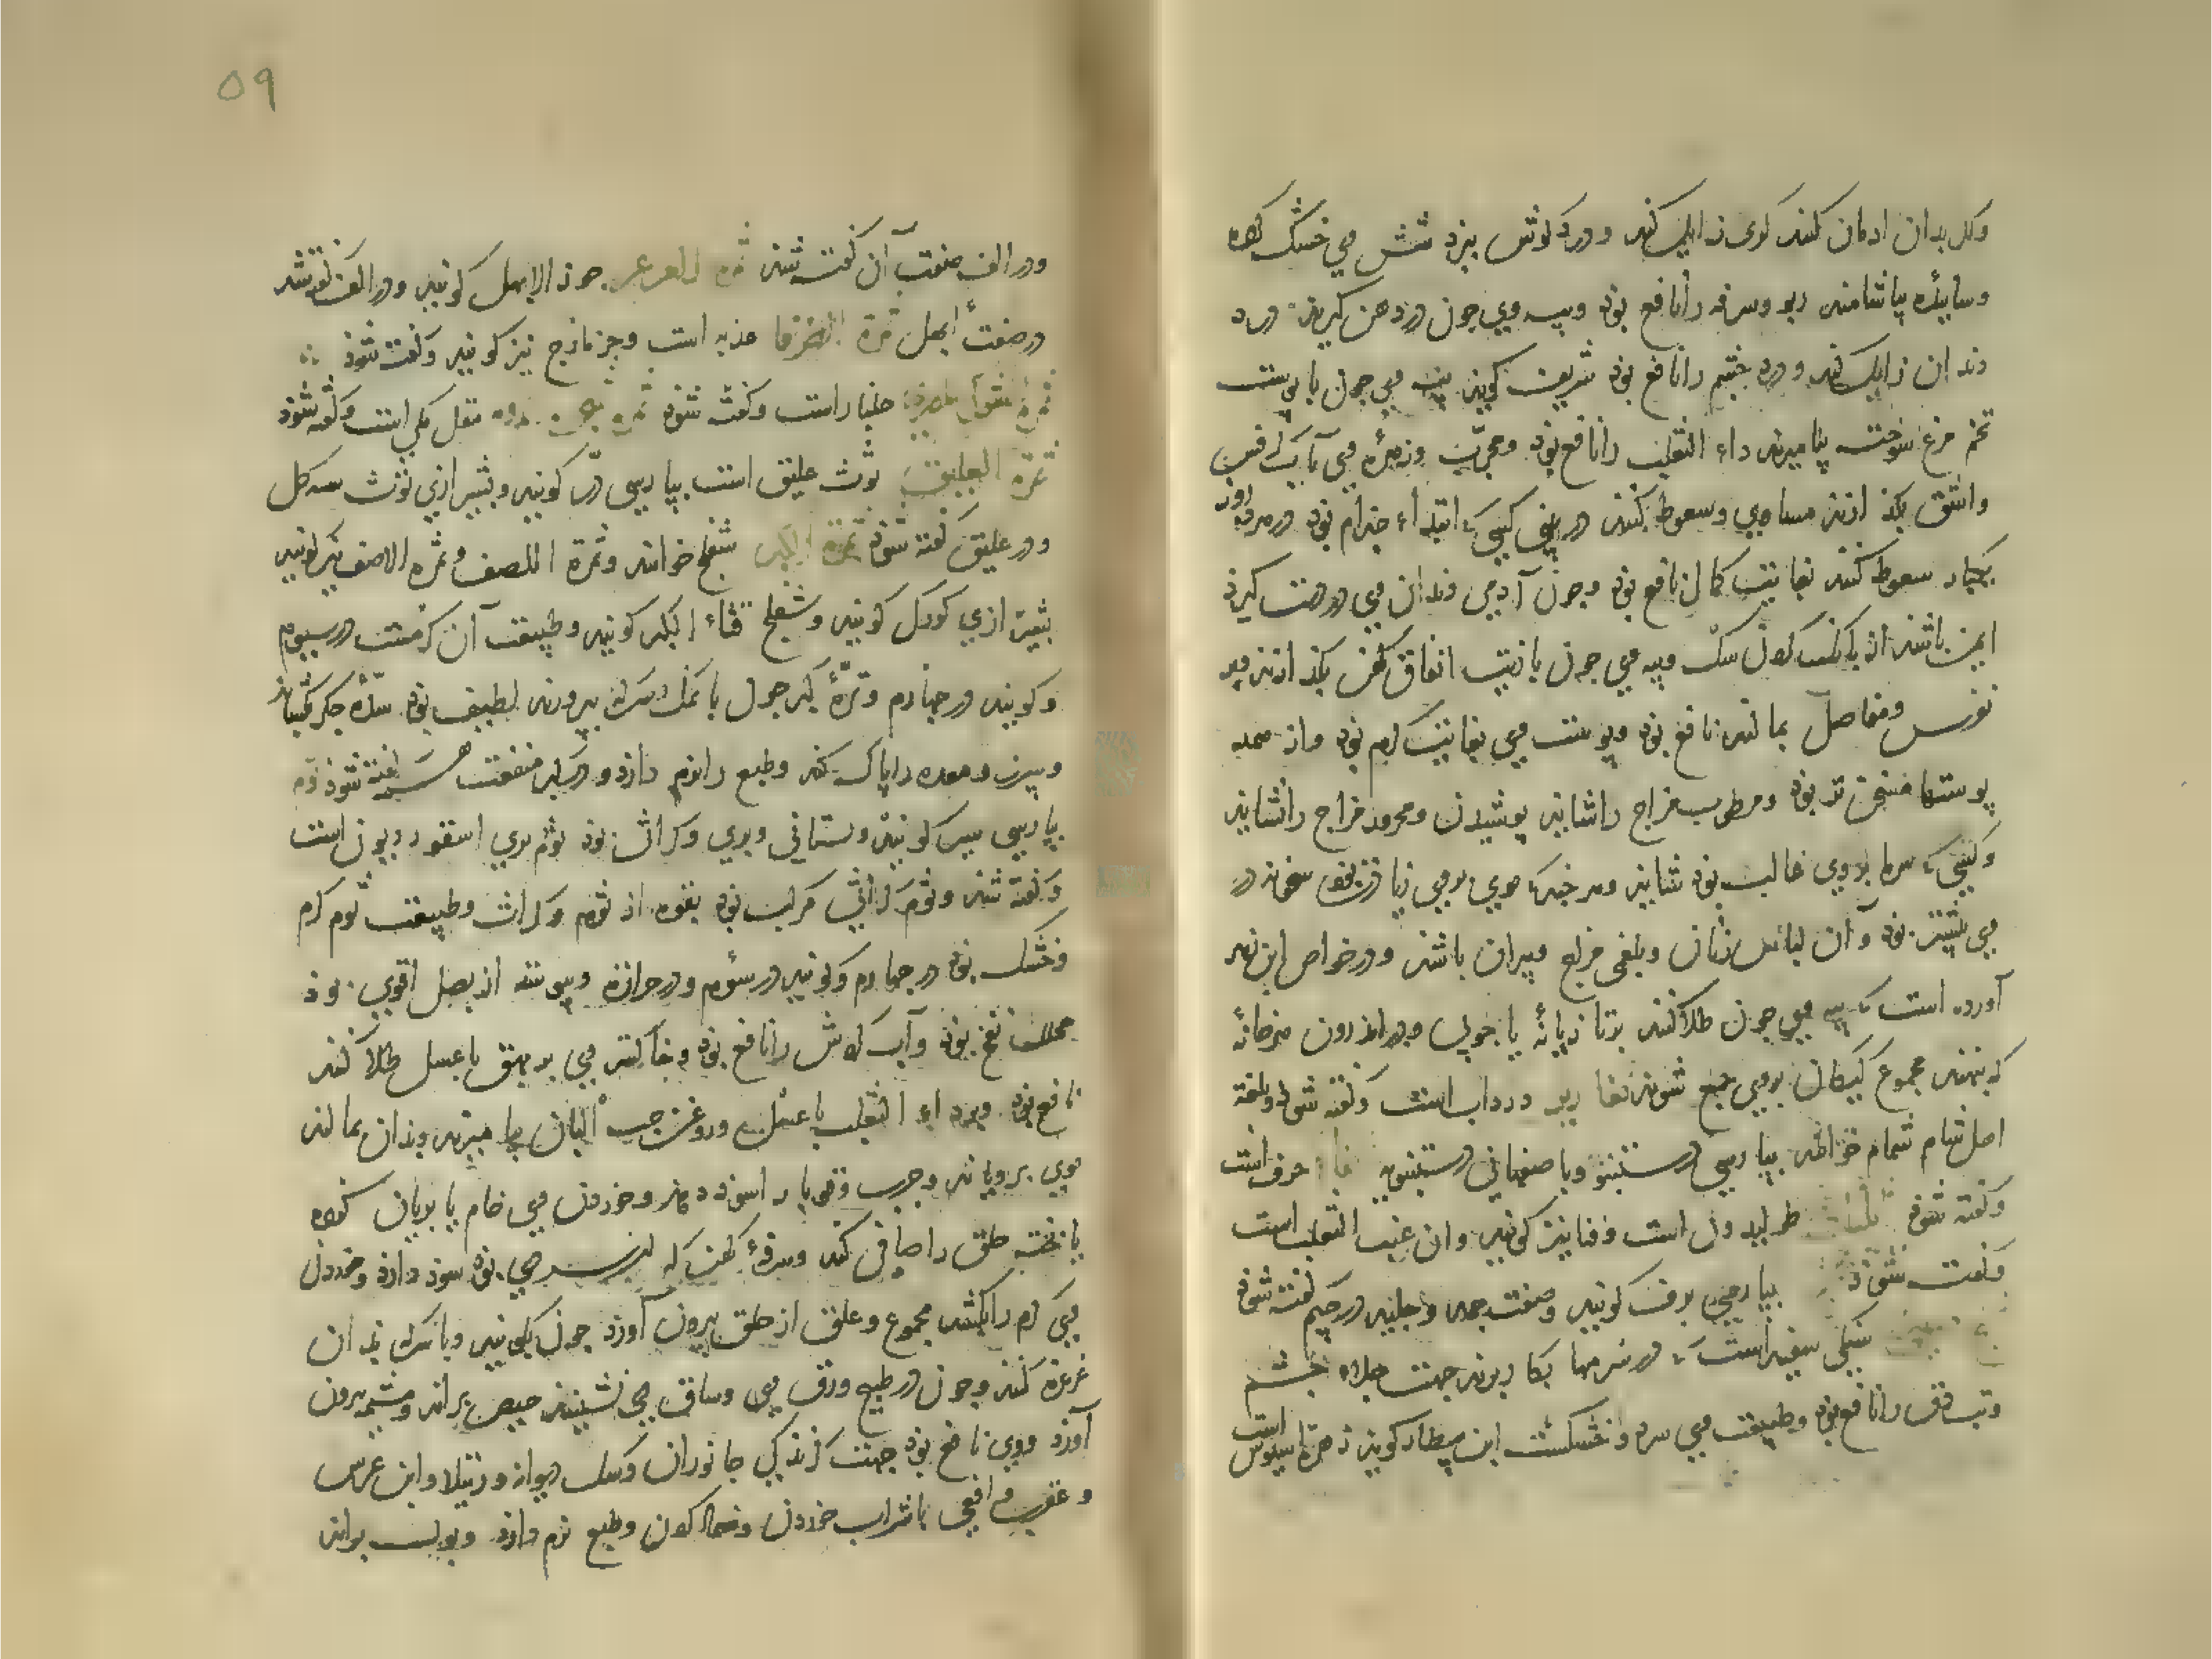 وکل بدان ادمان کنند کری زایل کند ودرد کوش ببرد شش وی خشک کرده
وساییده بیاشامند ربو وسرفه را نافع بود وپیه وی چون در دهن کیرند درد
دندان زایل کند ودرد چشم را نافع بود شریف کوید پیه وی چون با پوست
تخم مرغ سوخته بیامیزند داء الثعلب را نافع بود ومجربست وزهره وی با آب
واشق یکد ازین مساوی وسعوط کنند در بینی کسی که ابتداء جذام بود در هر روز
یکبار سعوط کنند بغایت کمال نافع بود وچون آدمی دندان وی در دست کیرد
ایمن باشند از بانک کردن سک وپیه وی چون با زیت انفاق کهن یکد ازند وبر
نقرس ومفاصل بمالند نافع بود وپوست وی بغایت کرم بود واز همه
پوستها مسخن تر بود ومرطوب مزاج را شاید پوشیدن ومحرور مزاج را نشاید
وکسی که سرما بر وی غالب بود شاید وهر چند که موی بر وی زیادت بود سخونت در
وی بیشتر بود وآن لباس زنان وبلغمی مزاج وپیران باشد ودر خواص ابن زهر
آورده است که پیه وی چون طلا کنند بر تازیانه یا چوبی ودر اندرون خانه
که بنهند مجموع کیکان بر وی جمع شوند
اهل شام شمام خوانند بپارسی دستنبو وباصفهانی دستنبویه ثفا حرف است
وکفته شود ثلثان طرلیدون است وفنا نیز کویند وآن عنب الثعلب است
وکفته شود ثلج بپارسی برف کویند وصفت جمد وجلید در جیم کفته شود
سنکی سفید است که در سرمها بکار برند جهت جلاء چشم
وتب دق را نافع بود وطبیعت وی سرد وخشکست ابن بیطار کوید زهرة اسیوس است
۵۹
ودر الف صفت آن کفته شد ثمرة العرعر جوز الابهل کویند ودر الف کفته شد
در صفت ابهل ثمرة الطرفا عذبه است وجزمازج نیز کویند وکفته شود
ثمرة شوک المصریه جلنار است وکفته شود ثمرة مقل مکی است وکفته شود
ثمرة العلیق توث علیق است بپارسی در کویند وبشیرازی توث سه کل
ودر علیق کفته شود ثمرة الکبر شفلح خوانند وثمرة اللصف وثمرة الاصف نیز کویند
بشیرازی کورک کویند وشفلح قثاء الکبر کویند وطبیعت آن کرمست در سیوم
وکویند در چهارم وثمرة کبر چون با نمک وسرکه پرورند لطیف بود سده جکر بکشاید
وسپرز ومعده را پاک کند وطبع را نرم دارد ودر کبر منفعت کفته شود ثوم
بپارسی سیر کویند وبستانی وبری وکراثی بود ثوم بری اسقوردیون است
وکفته شد وثوم کراثی مرکب بود بقوه از ثوم وکراث وطبیعت ثوم کرم
وخشک بود در چهارم وکویند در سوم ودر حرارة ویبوست از بصل اقوی بود
محلل نفخ بود وآب کردش را نافع بود وخاکستر وی بر بهق با عسل طلا کنند
نافع بود وبر داء الثعلب با عسل وروغن حب البان بیامیزند وبدان بمالند
موی برویاند وجرب وقوبا را سود دهد وخوردن وی خام یا بریان کرده
یا پخته حلق را صافی کند وسرفه کهن که از سردی بود سود دارد وخوردن
وی کرم را بکشد مجموع وعلق از حلق بیرون آورد چون بکوبند وبا سرکه بدان
غرغره کنند وچون در طبیخ ورق وی وساق وی نشینند حیض براند ومشیمه بیرون
آورد ووی نافع بود جهت کزندکی جانوران وسک دیوانه ورتیلا وابن عرس
وعقرب وافعی با شراب خوردن وضماد کردن وطبع نرم دارد وبول براند